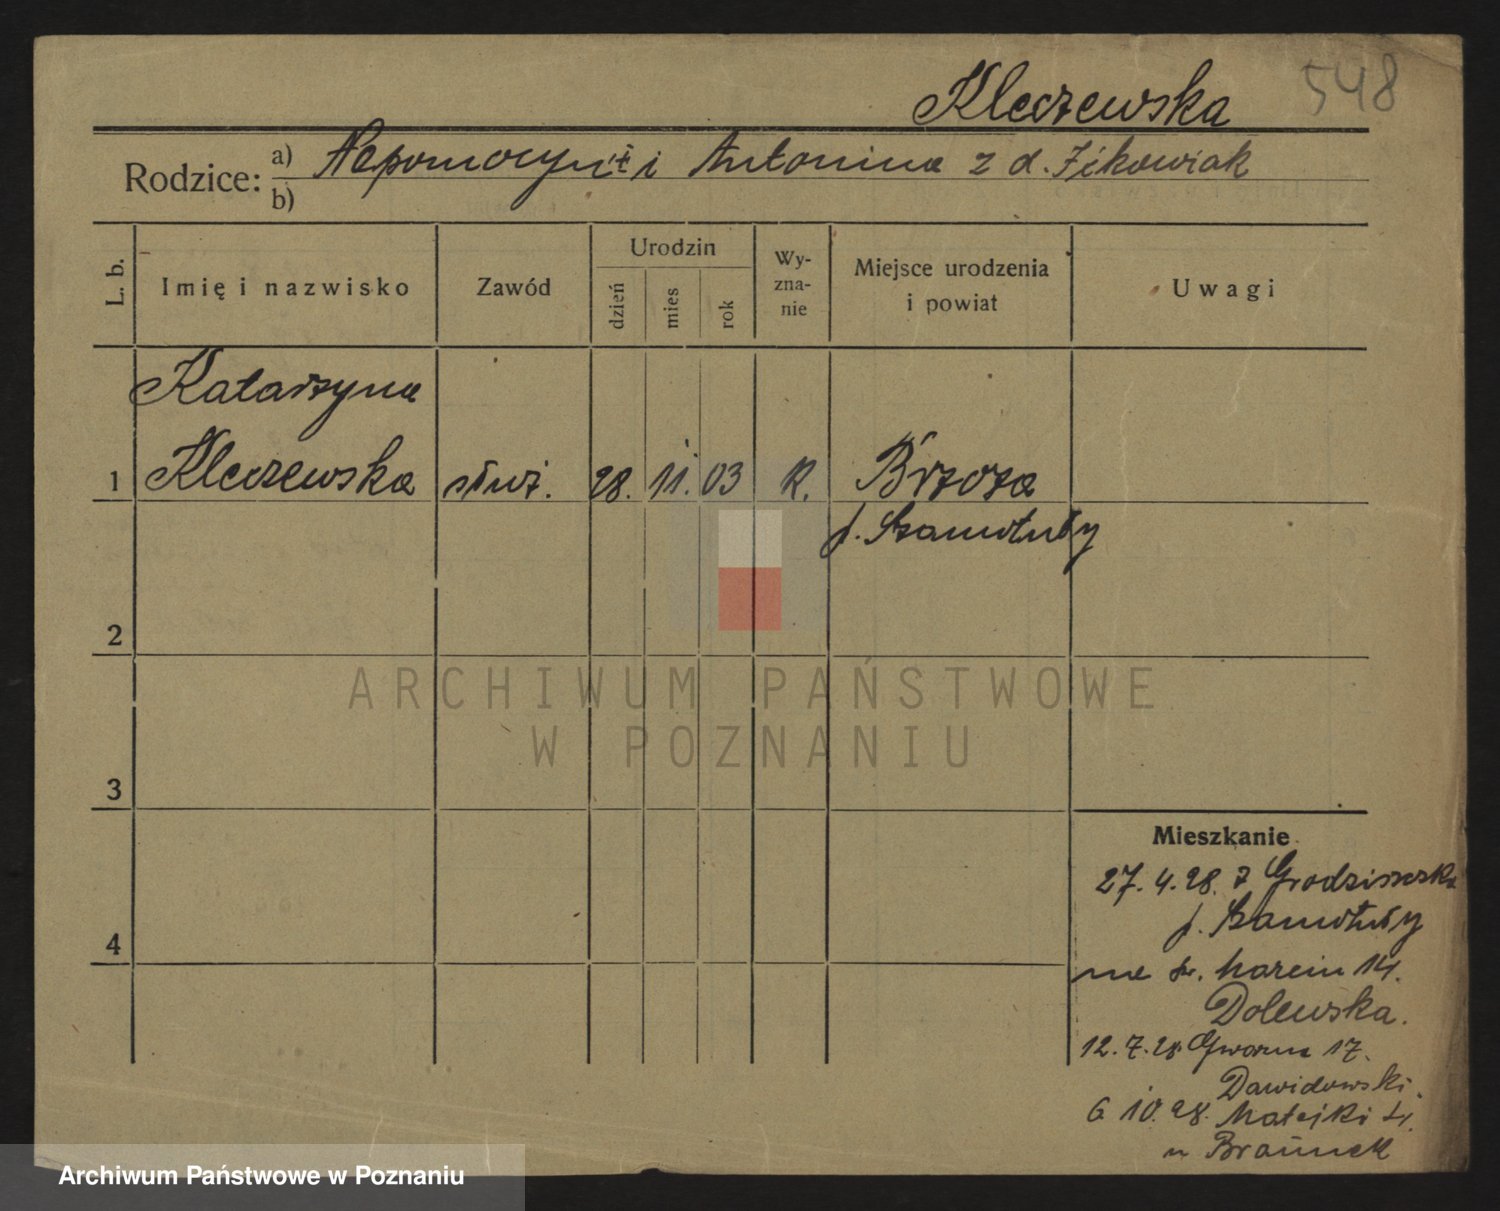 Kleczewska 548
Rodzice: a) Nepomocyn i Antonina z d.
b)
L. b.
Imię i nazwisko
Zawód
Urodzin
dzień
mies
rok
Wy-
zna-
nie
Miejsce urodzenia
i powiat
Uwagi
Katarzyna
1 Kleczewska służ. 28. 11. 03 R. Brzoza
p. Szamotuły
2
3
4
ARCHIWUM PAŃSTWOWE
W POZNANIU
Mieszkanie
27.4.28. z Grodziszczka
p. Szamotuły
na św. Marcin 14.
Dolewska.
12.7.28 Gwarna 17.
Dawidowski.
6 10.28. Matejki
u Braunek
Archiwum Państwowe w Poznaniu